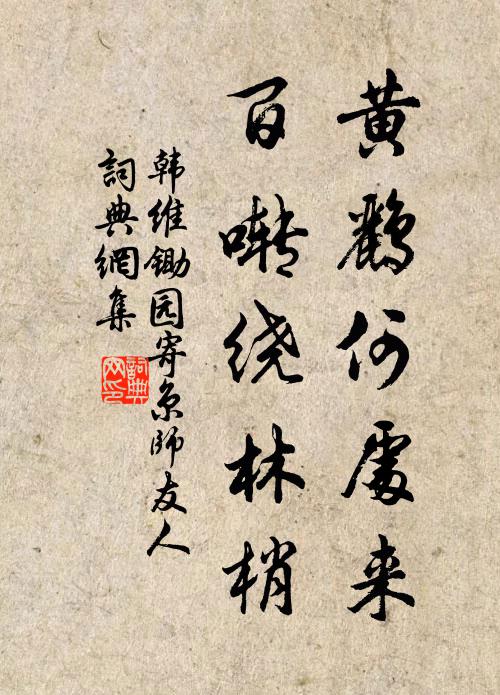 黄鹂何處来
百啭绕林梢
韩维锄园寄京师友人
詞典網集
詞典
网印